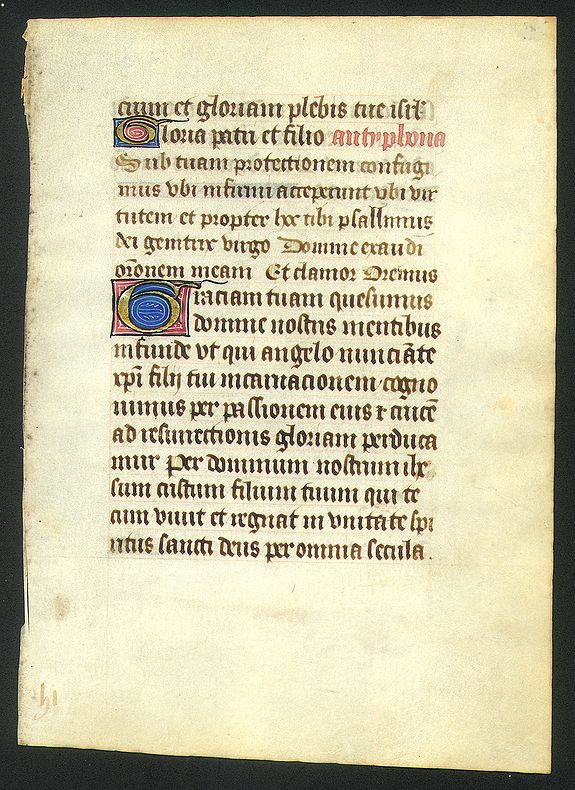 cium et gloriam plebis tue isrł
Gloria patri et filio antyphona
Sub tuam protectionem confugi
mus vbi infirmi acceperunt vbi vir
tutem et propter hec tibi psallimus
dei genitrix virgo Domine exaudi
orōnem meam Et clamor Oremus
Graciam tuam quesumus
domine nostris mentibus
infunde vt qui angelo nunciāte
xpī filij tui incarnacionem cogno
uimus per passionem eius ⁊ crucē
ad resurrectionis gloriam perduca
mur Per dominum nostrum ihe
sum cristum filium tuum qui te
cum viuit et regnat in vnitate spi
ritus sancti deus per omnia secula.